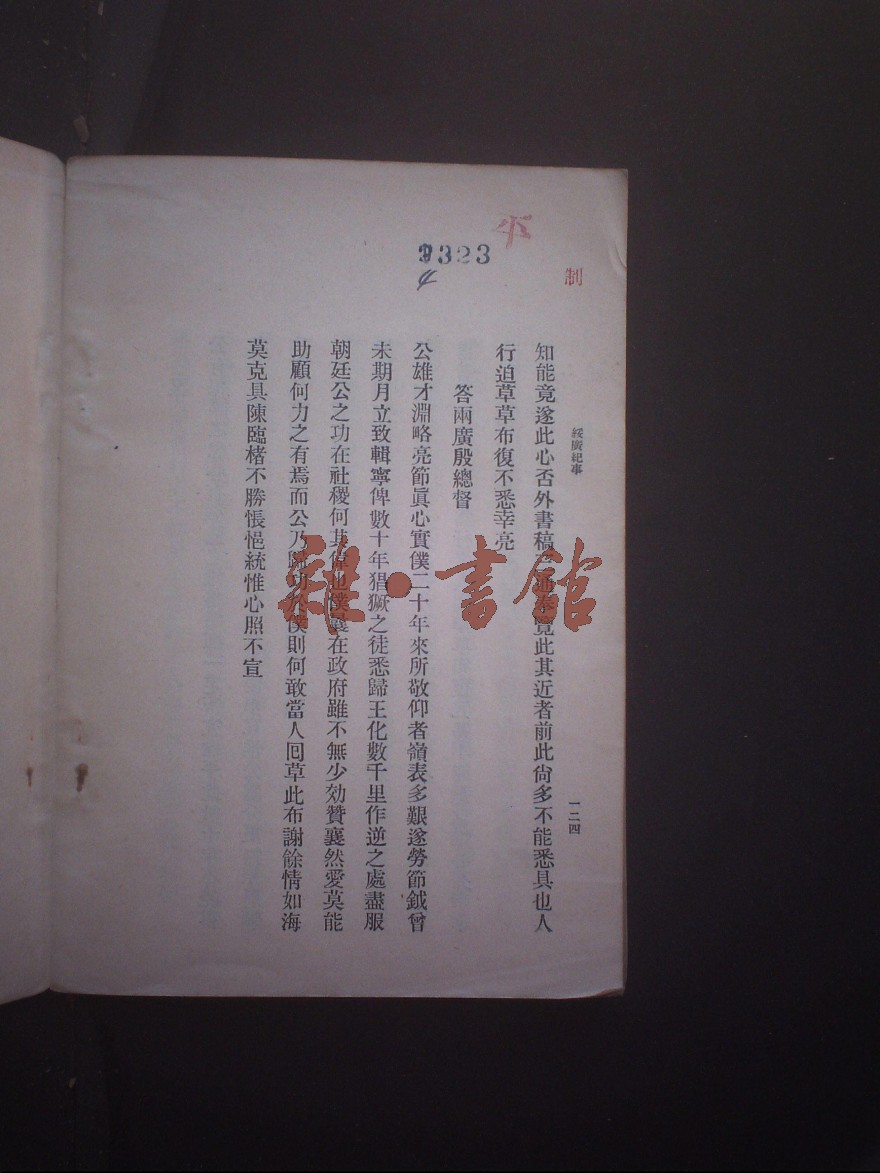 3323
制
綏廣紀事
一二四
知能竟遂此心否外書稿 通奉覽此其近者前此尙多不能悉具也人
行迫草草布復不悉幸亮
答兩廣殷總督
公雄才淵略亮節眞心實僕二十年來所敬仰者嶺表多艱遂勞節鉞曾
未期月立致輯寧俾數十年猖獗之徒悉歸王化數千里作逆之處盡服
朝廷公之功在社稷何其偉也僕曩在政府雖不無少効贊襄然愛莫能
助顧何力之有焉而公乃歸功於僕則何敢當人囘草此布謝餘情如海
莫克具陳臨楮不勝悵悒統惟心照不宣
雜·書館